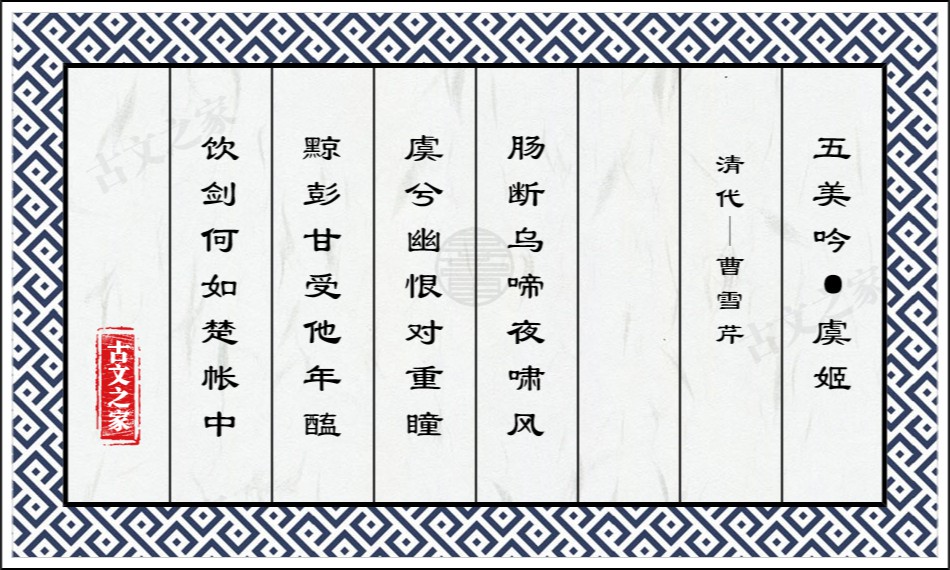 五美吟●虞姬
清代—曹雪芹
肠断乌啼夜啸风
虞兮幽恨对重瞳
黥彭甘受他年醢
饮剑何如楚帐中
古文之家
古文之家
古文之家